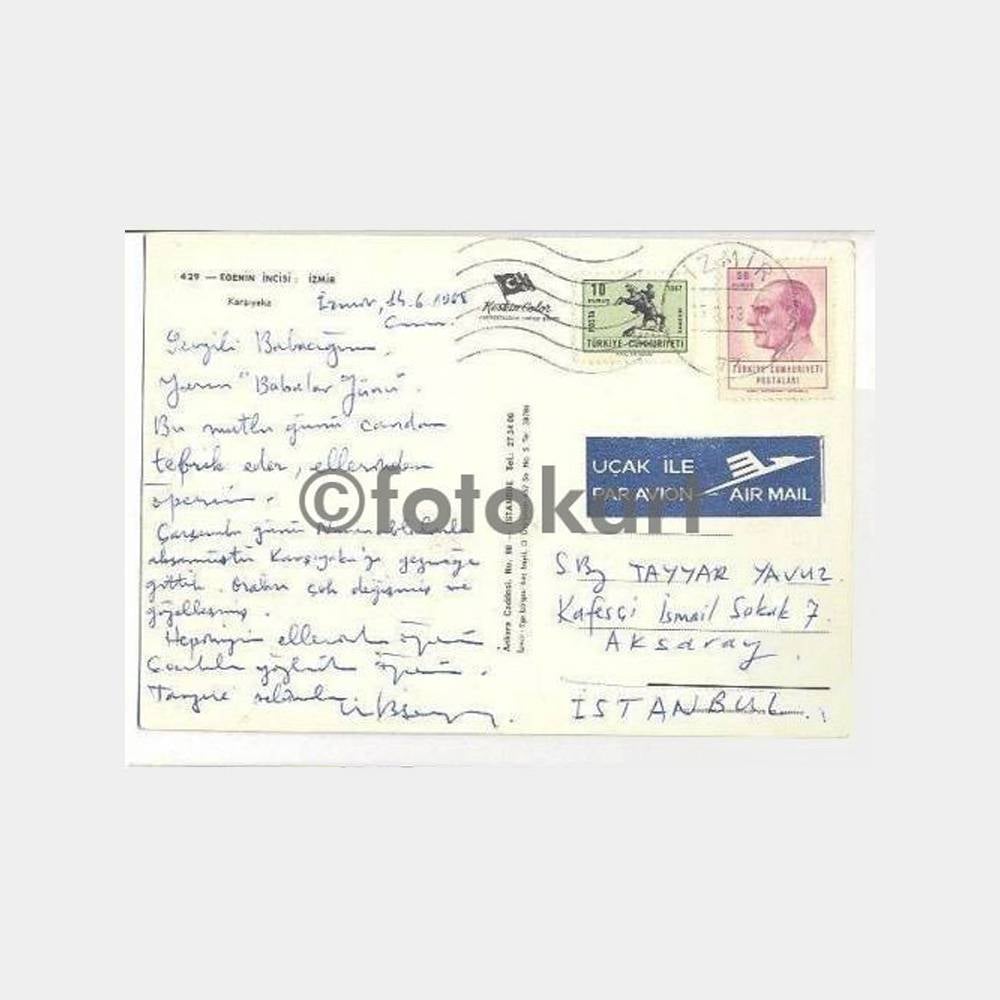 429 — EGENİN İNCİSİ : İZMİR
Karşıyaka
İzmir, 15.6.1968
Sevgili Babacığım,
Yarın "Babalar Günü".
Bu mutlu günü candan
tebrik eder, ellerinden
öperim.
Çarşamba günü
akşamüstü Karşıyaka'ya gezmeğe
gittik. Oraları çok değişmiş ve
güzelleşmiş.
Hepinizin ellerinden öperim
öperim.
Keskin Color
Ankara Caddesi, No. 98 - İSTANBUL Tel.: 27 34 06
10
KURUŞ
1967
POSTA
TÜRKİYE-CUMHURİYETİ
İZMİR
50
KURUŞ
TÜRKİYE CUMHURİYETİ
POSTALARI
UÇAK İLE
PAR AVION
AIR MAIL
©fotokurt
S. By TAYYAR YAVUZ.
Kafesçi İsmail Sokak 7.
Aksaray.
İSTANBUL.